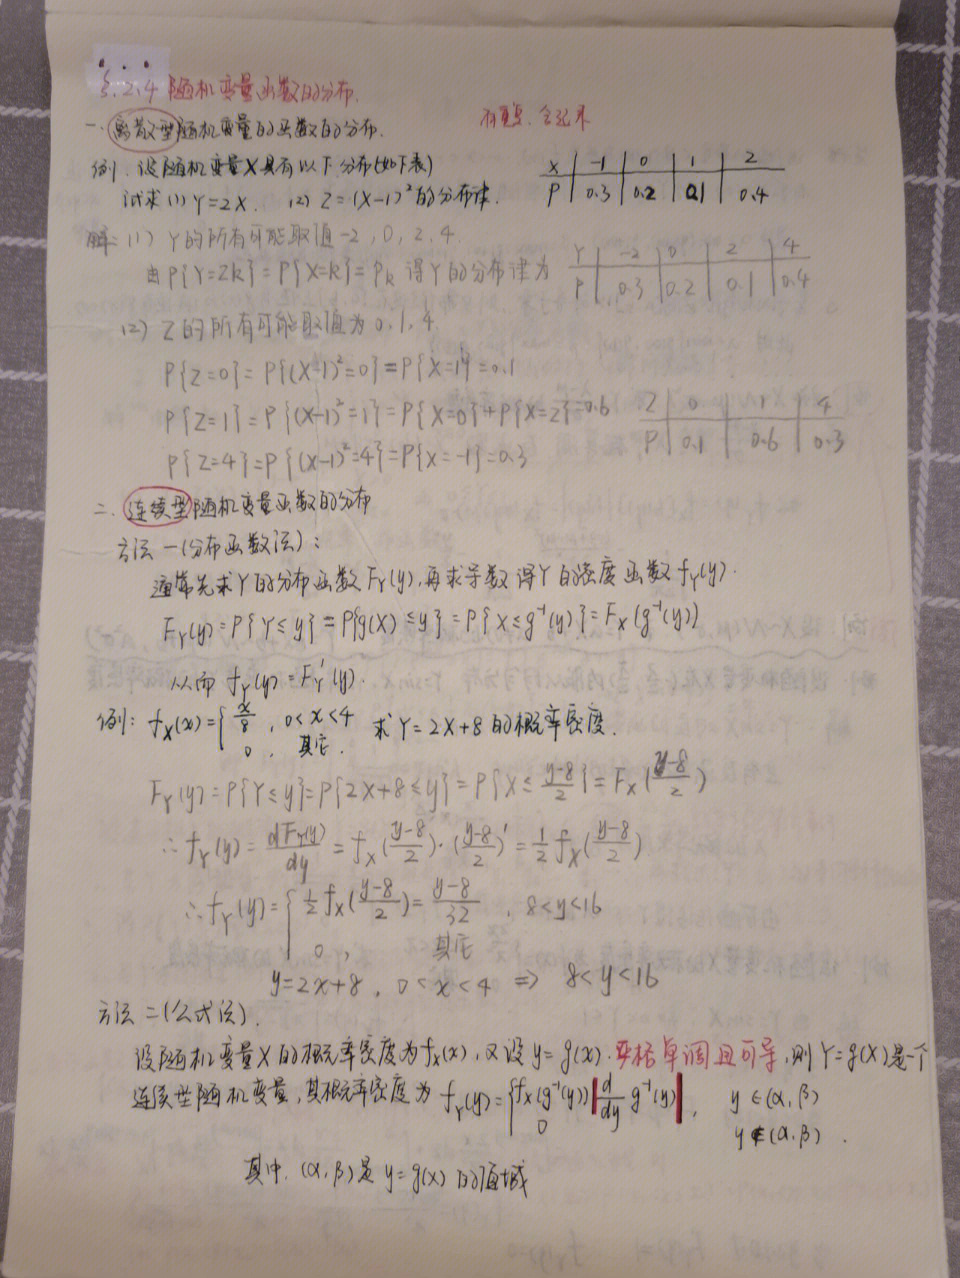 §.2.4 随机变量函数的分布.
一.离散型随机变量的函数的分布.
例:设随机变量X具有以下分布(如下表)
X -1 0 1 2
P 0.3 0.2 0.1 0.4
试求(1) Y=2X. (2) Z=(X-1)²的分布律.
解:(1) Y的所有可能取值-2,0,2,4.
由P{Y=2k}=P{X=k}=Pk 得Y的分布律为
Y -2 0 2 4
P 0.3 0.2 0.1 0.4
(2) Z的所有可能取值为0,1,4.
P{Z=0}=P{(X-1)²=0}=P{X=1}=0.1
P{Z=1}=P{(X-1)²=1}=P{X=0}+P{X=2}=0.6
Z 0 1 4
P 0.1 0.6 0.3
P{Z=4}=P{(X-1)²=4}=P{X=-1}=0.3
二.连续型随机变量函数的分布
方法一(分布函数法):
通常先求Y的分布函数F_Y(y),再求导数得Y的密度函数f_Y(y).
F_Y(y)=P{Y≤y}=P{g(X)≤y}=P{X≤g⁻¹(y)}=F_X(g⁻¹(y))
从而 f_Y(y)=F_Y'(y).
例: f_X(x)={ x/8, 0<x<4 求Y=2X+8的概率密度.
0, 其它.
F_Y(y)=P{Y≤y}=P{2X+8≤y}=P{X≤(y-8)/2}=F_X((y-8)/2)
∴f_Y(y)=dF_Y(y)/dy=f_X((y-8)/2)·((y-8)/2)'=1/2 f_X((y-8)/2)
∴f_Y(y)={ 1/2 f_X((y-8)/2)=(y-8)/32, 8<y<16
0, 其它
y=2x+8, 0<x<4 ⇒ 8<y<16
方法二(公式法).
设随机变量X的概率密度为f_X(x),又设y=g(x).严格单调且可导,则Y=g(X)是一个
连续型随机变量,其概率密度为 f_Y(y)={ f_X(g⁻¹(y))|d/dy g⁻¹(y)|, y∈(α,β)
0 y∉(α,β).
其中.(α,β)是y=g(x)的值域